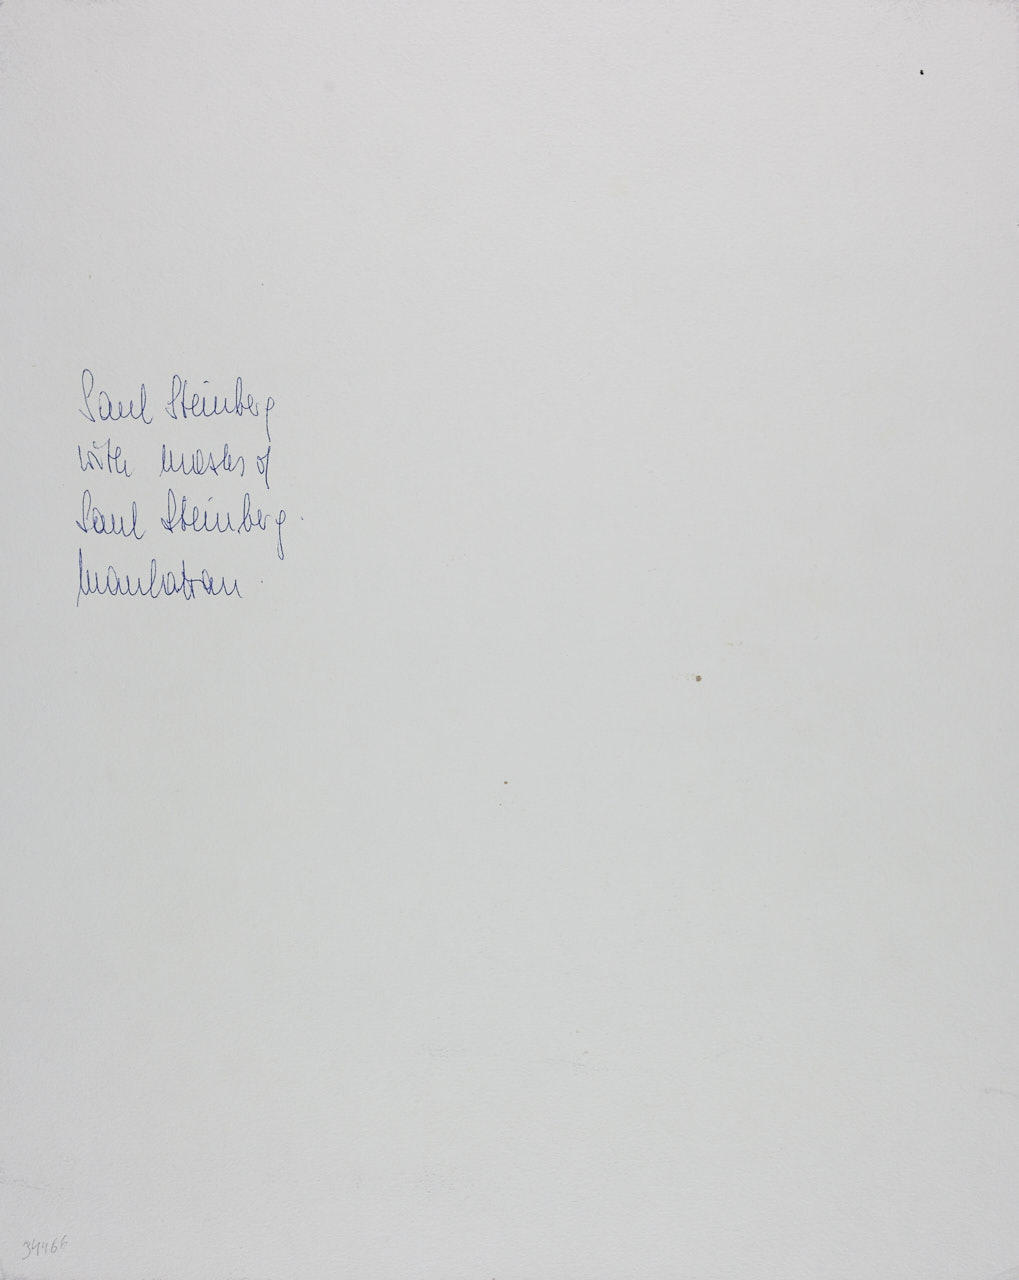 Saul Steinberg
with masks of
Saul Steinberg.
Manhatran.
34466